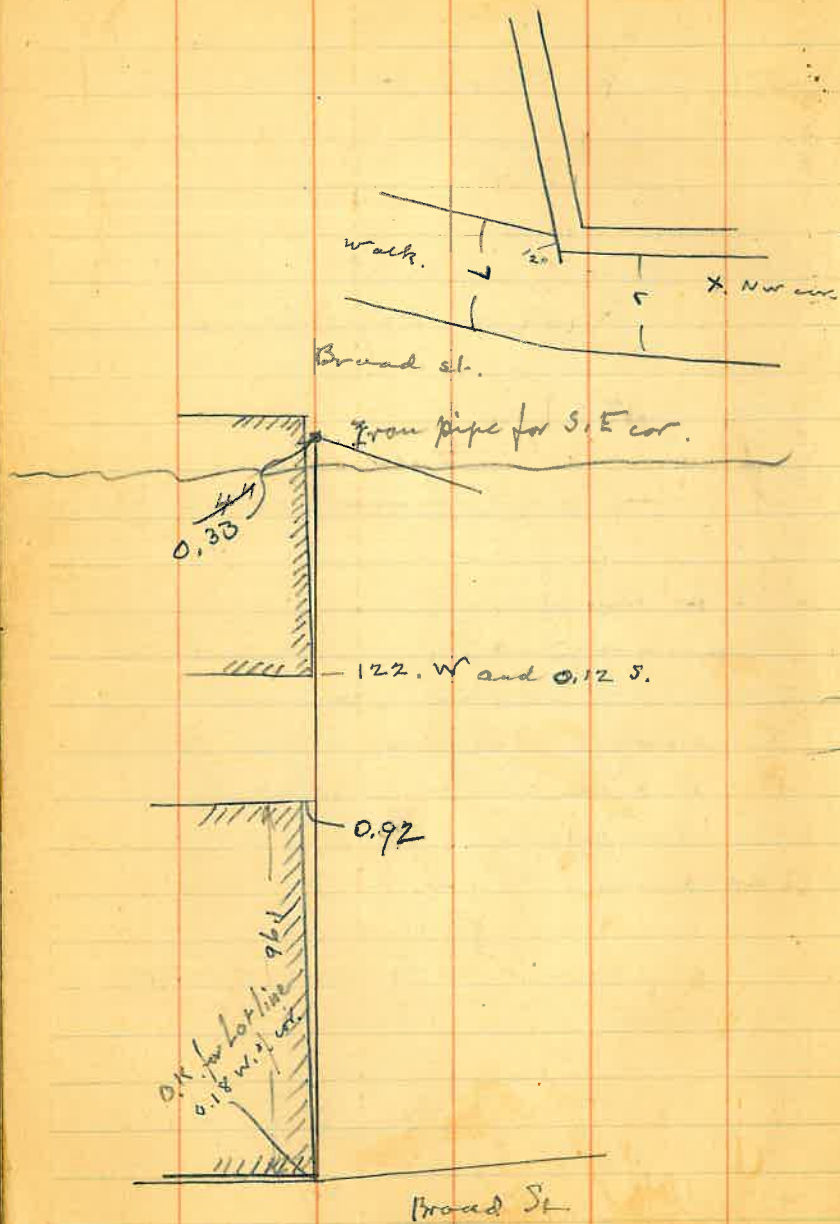 Walk.
X. NW cor.
Broad st.
Iron pipe for S.E cor.
0.33
122. W and 0.12 S.
0.92
96
O.K. for Lot line
0.18 W. of cor.
Broad St